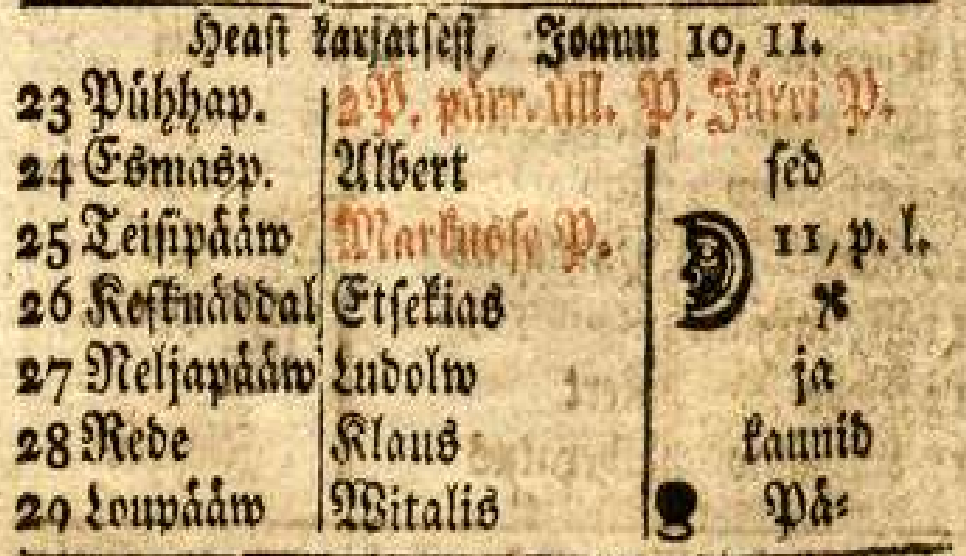 Heast karjatsest, Joann 10, 11.
23 Pühhap. 2 P. pärr. Ull. P. Jürri P.
24 Esmasp. Albert sed
25 Teisipääw Markusse P. 11, p. l.
26 Kesknäddal Etsekias
27 Neljapääw Ludolw ja
28 Rede Klaus kaunid
29 Loupääw Witalis Pä⸗